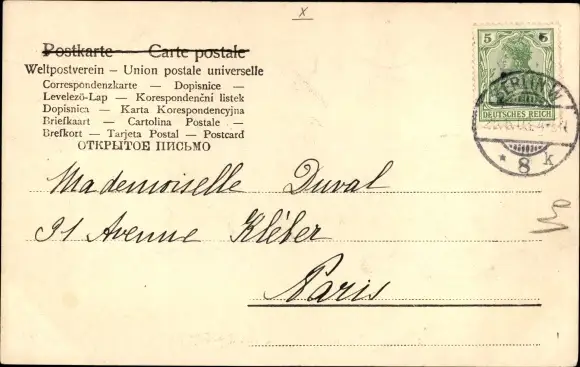 x
Postkarte — Carte postale
Weltpostverein – Union postale universelle
Correspondenzkarte — Dopisnice —
Levelező-Lap — Korespondenční listek
Dopisnica — Karta Korespondencyjna
Briefkaart — Cartolina Postale —
Brefkort — Tarjeta Postal — Postcard
ОТКРЫТОЕ ПИСЬМО
5 5
DEUTSCHES REICH
BERLIN W
* 8 k
Mademoiselle Duval
91 Avenue Kléber
Paris